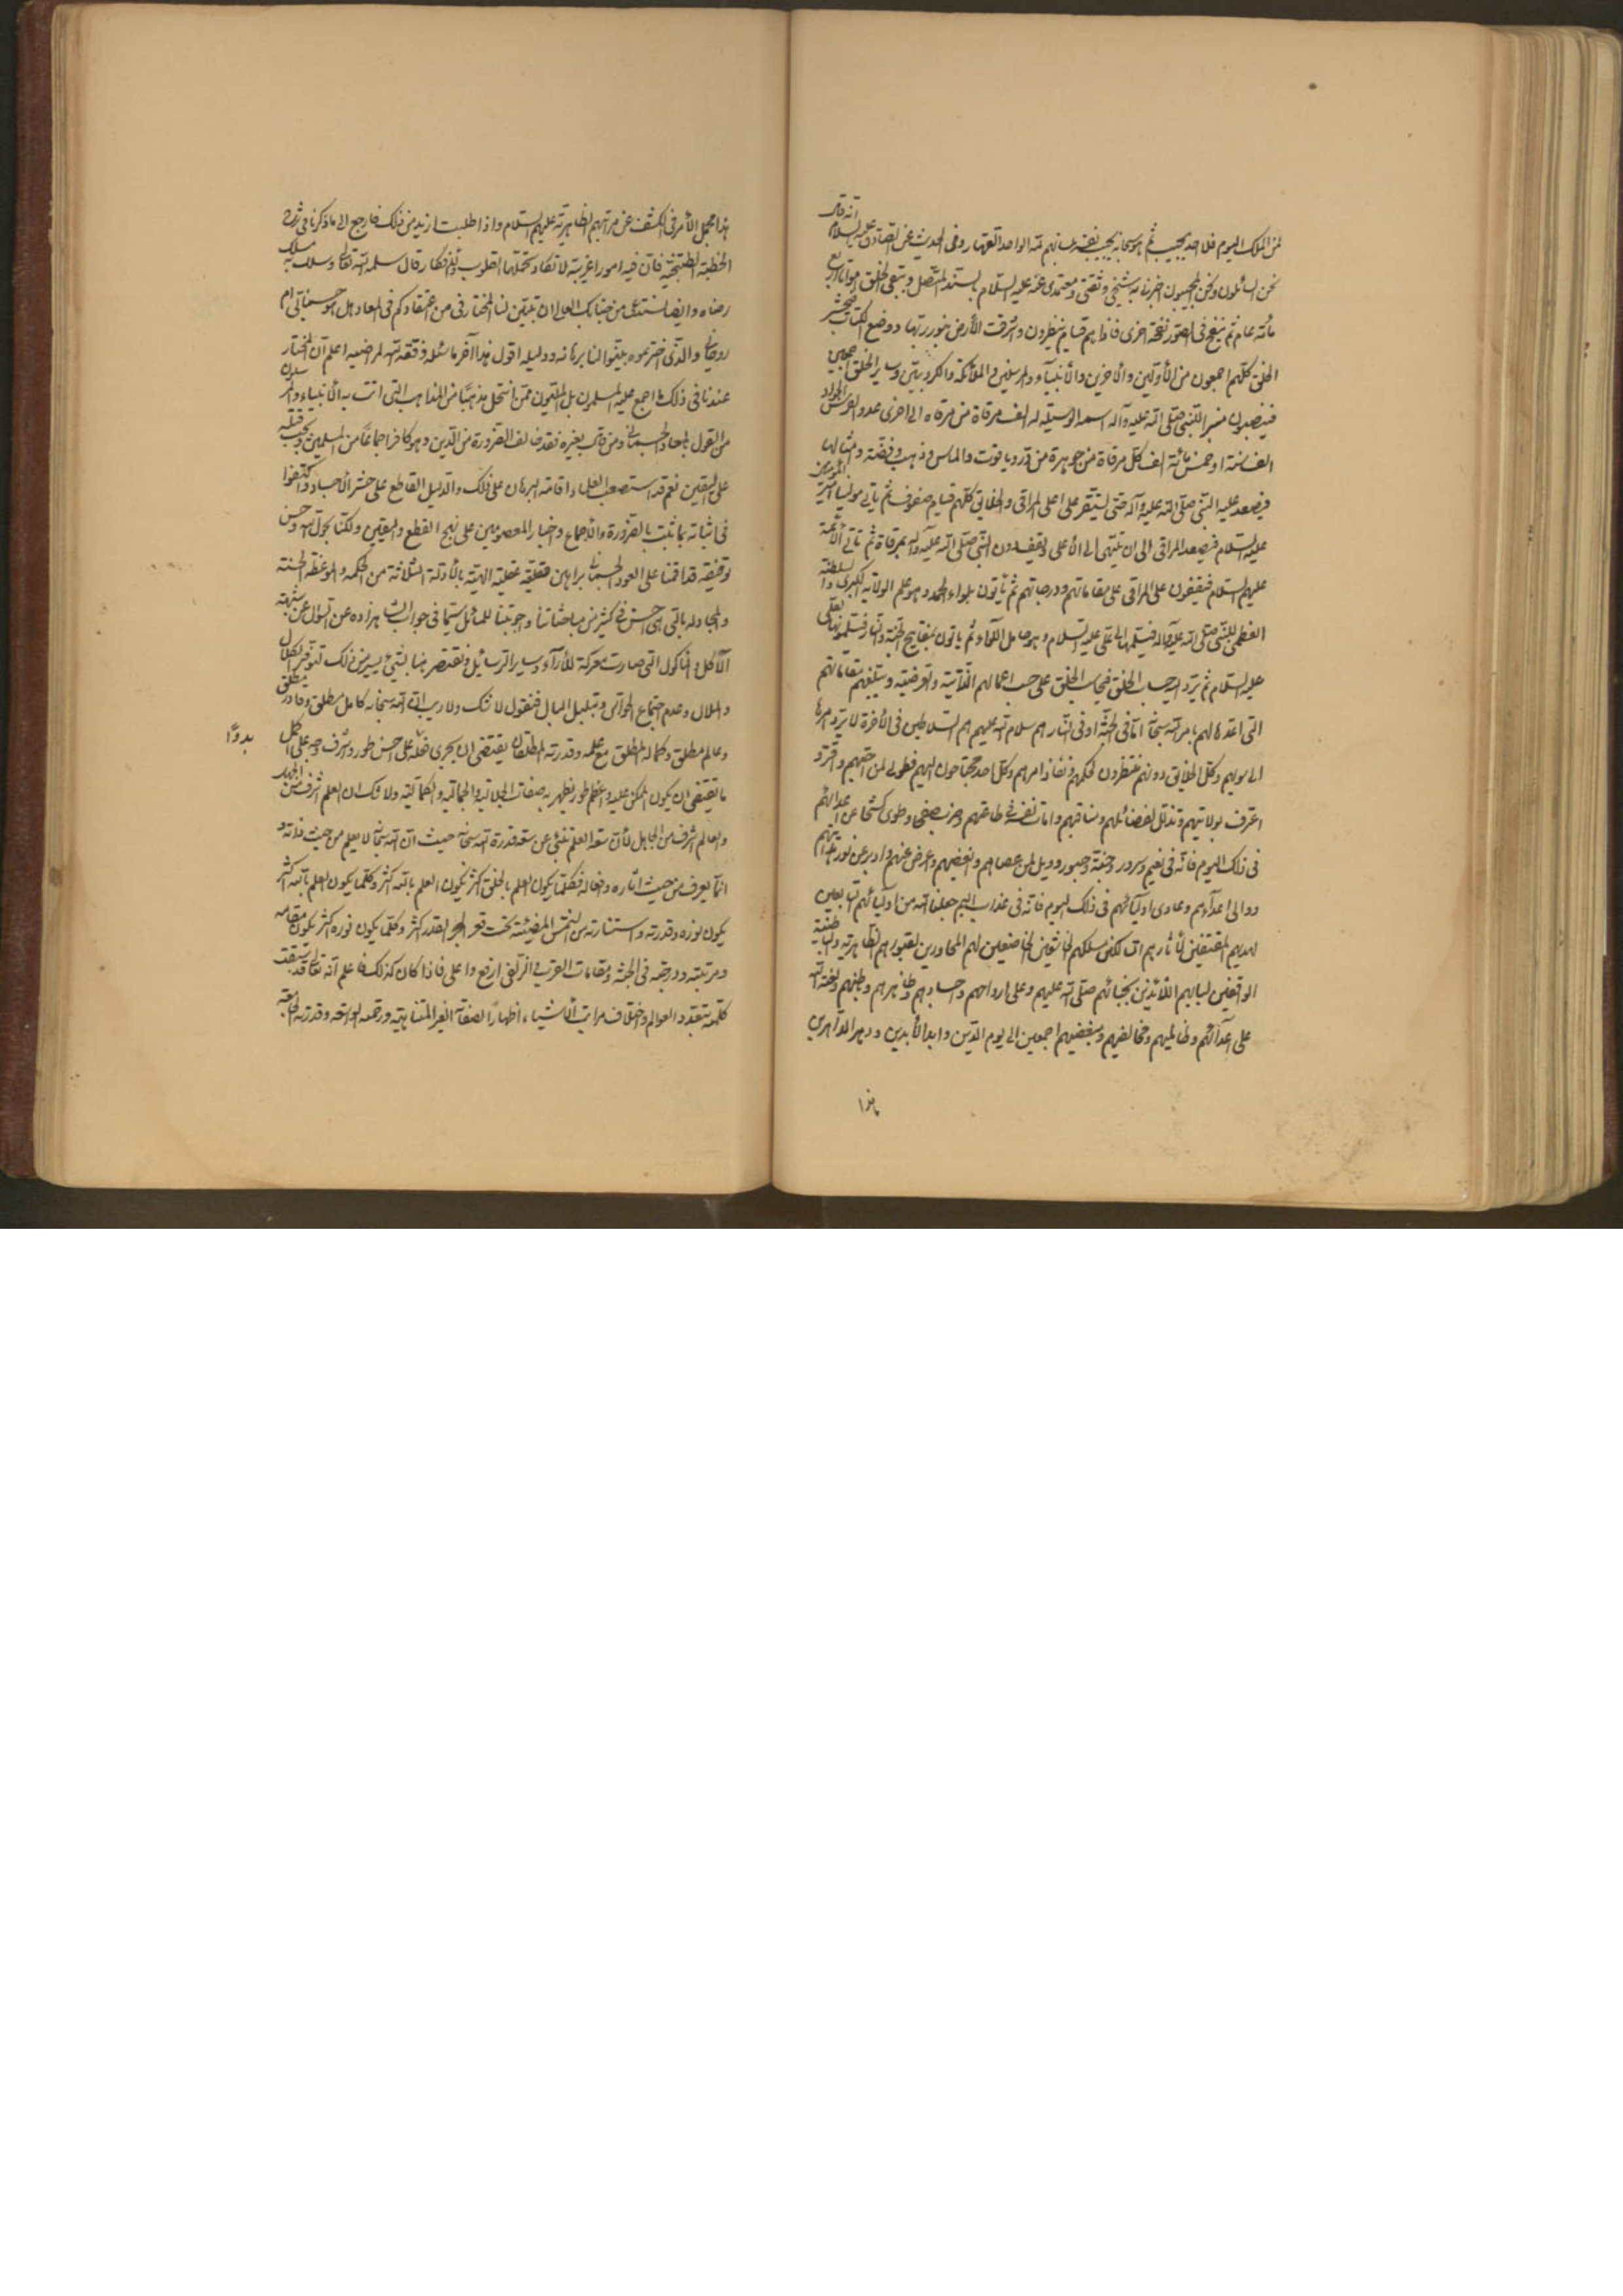 لمن الملك اليوم فلا احد يجيب ثم هو سبحانه يجيب نفسه بلسانهم لله الواحد القهار وفي الحديث عن الصادق عليه السلام انه قال
نحن السائلون ونحن المجيبون اخبرنا به شيخي وثقتي ومعتمدي عنه عليه السلام بالسند المتصل ويبقى الخلق امواتا اربع
مائة عام ثم ينفخ في الصور نفخة اخرى فاذا هم قيام ينظرون واشرقت الأرض بنور ربها ووضع الكتاب فيحشر
الخلق كلهم اجمعون من الأولين والأخرين والأنبياء والمرسلين والملائكة والكروبيين وساير الخلق اجمعين
فينصبون منبر النبي صلى الله عليه وآله اسمه الوسيلة له الف مرقاة من مرقاة الى اخرى عدو الفرس الجواد
الف سنة او خمس مائة الف كل مرقاة من جوهرة من در وياقوت والماس وذهب وفضة وامثالها
فيصعد عليه النبي صلى الله عليه وآله حتى يستقر على اعلى المراقي والخلايق كلهم قيام صفوف ثم يأتي مولينا امير المؤمنين
عليه السلام فيصعد المراقي الى ان ينتهي الى الأعلى ويقف دون النبي صلى الله عليه وآله بمرقاة ثم تأتي الأئمة
عليهم السلام فيقفون على المراقي على مقاماتهم ودرجاتهم ثم يأتون بلواء الحمد وهو علم الولاية الكبرى والسلطنة
العظمى للنبي صلى الله عليه وآله فيسلمها الى علي عليه السلام وهو حامل اللواء ثم يأتون بمفاتيح الجنة والنار فيسلمونها الى علي
عليه السلام ثم يرد اليه حساب الخلق فيحاسب الخلق على حسب اعمالهم الذاتية والعرضية ويبلغهم مقاماتهم
التي اعدها لهم بامر الله سبحانه اما في الجنة او في النار هم سلام الله عليهم هم السلاطين في الأخرة لا يرد امرها
الا اليهم وكل الخلايق دونهم منتظرون لحكمهم ونفاذ امرهم وكل احد محتاجون اليهم فطوبى لمن احبهم واقر و
اعترف بولايتهم وتذلل لفضائلهم ومناقبهم وامات نفسه في طاعتهم وضرب صفحا وطوى كشحا عن اعدائهم
في ذلك اليوم فانه في نعيم وسرور وجنة وحبور وويل لمن عصاهم وابغضهم واعرض عنهم وادبر عن نور
ووالى اعداءهم وعادى اوليائهم في ذلك اليوم فانه في عذاب اليم جعلنا الله من اوليائهم التابعين
لهديهم المقتفين لأثارهم السالكين مسلكهم الخاشعين الخاضعين لهم المجاورين لقبورهم الظاهرية والباطنية
الواقفين لبابهم اللائذين بجنابهم صلى الله عليهم وعلى ارواحهم واجسادهم وظاهرهم وباطنهم ولعنة الله
على اعدائهم وظالميهم ومخالفيهم ومبغضيهم اجمعين الى يوم الدين وابد الأبدين ودهر الداهرين
هذا
هذا مجمل الأمر في الكشف عن مراتبهم الظاهرية عليهم السلام واذا طلبت ازيد من ذلك فارجع الى ما ذكرنا في شرح
الخطبة الطتنجية فان فيه امورا غريبة لا تكاد تحتملها القلوب والأفكار قال سلمه الله تعالى وسلك به مسلك
رضاه وايضا نستدعي من جنابك العالي ان تبين لنا المختار في من اعتقادكم في المعاد هل هو جسماني ام
روحاني والذي اخترتموه بينوا لنا برهانه ودليله اقول هذا آخر ما سئله وفقه الله لمراضيه اعلم ان المختار
عندنا في ذلك ما اجمع عليه المسلمون بل المليون ممن انتحل مذهبا من المذاهب التي اتت به الأنبياء والمرسلون
من القول بالمعاد الجسماني ومن قال بغيره فقد خالف الضرورة من الدين وهو كافر اجماعا من المسلمين ويجب قتله
على اليقين نعم قد استصعب العلماء اقامة البرهان على ذلك والدليل القاطع على حشر الأجساد واكتفوا
في اثباته بما ثبت بالضرورة والاجماع واخبار المعصومين على نهج القطع واليقين ولكنا بحول الله وحسن
توفيقه قد اقمنا على العود الجسماني براهين قطعية عقلية الهية بالأدلة الثلاثة من الحكمة والموعظة الحسنة
والمجادلة بالتي هي احسن في كثير من مباحثاتنا واجوبتنا للمسائل سيما في جواب الشاهزاده عن السؤال عن شبهة
الآكل والمأكول التي صارت معركة للأراء وساير الرسائل ونقتصر هنا بشيء يسير من ذلك لتوفر الكلال
والملال وعدم اجتماع الحواس وتبلبل البال فنقول لا شك ولا ريب ان الله سبحانه كامل مطلق وقادر مطلق
وعالم مطلق وكماله المطلق مع علمه وقدرته المطلقان يقتضي ان يجري فعله على احسن طور واشرف وجه على اكمل
ما يقتضي ان يكون الممكن عليه واعظم طور يظهر به صفات الجلالية والجمالية والكمالية ولا شك ان العلم اشرف من الجهل
والعالم اشرف من الجاهل لأن سعة العلم تنبئ عن سعة قدرة الله سبحانه حيث ان الله سبحانه لا يعلم من حيث ذاته و
انما يعرف من حيث اثاره وافعاله فكلما يكون العلم بالخلق اكثر يكون العلم بالله اكثر وكلما يكون العلم بالله اكثر
يكون نوره وقدرته واستنارته من الشمس المضيئة تحت قعر البحر القدر اكثر وكلما يكون نوره اكثر يكون مقامه
ومرتبته ودرجته في الجنة ومقامات القرب في الزلفى ارفع واعلى فاذا كان كذلك فاعلم انه تعالى قد سبقت
كلمته بتعدد العوالم واختلاف مراتب الأشياء اظهارا لصفاته الغير المتناهية ورحمته الواسعة وقدرته الجامعة
بدوح